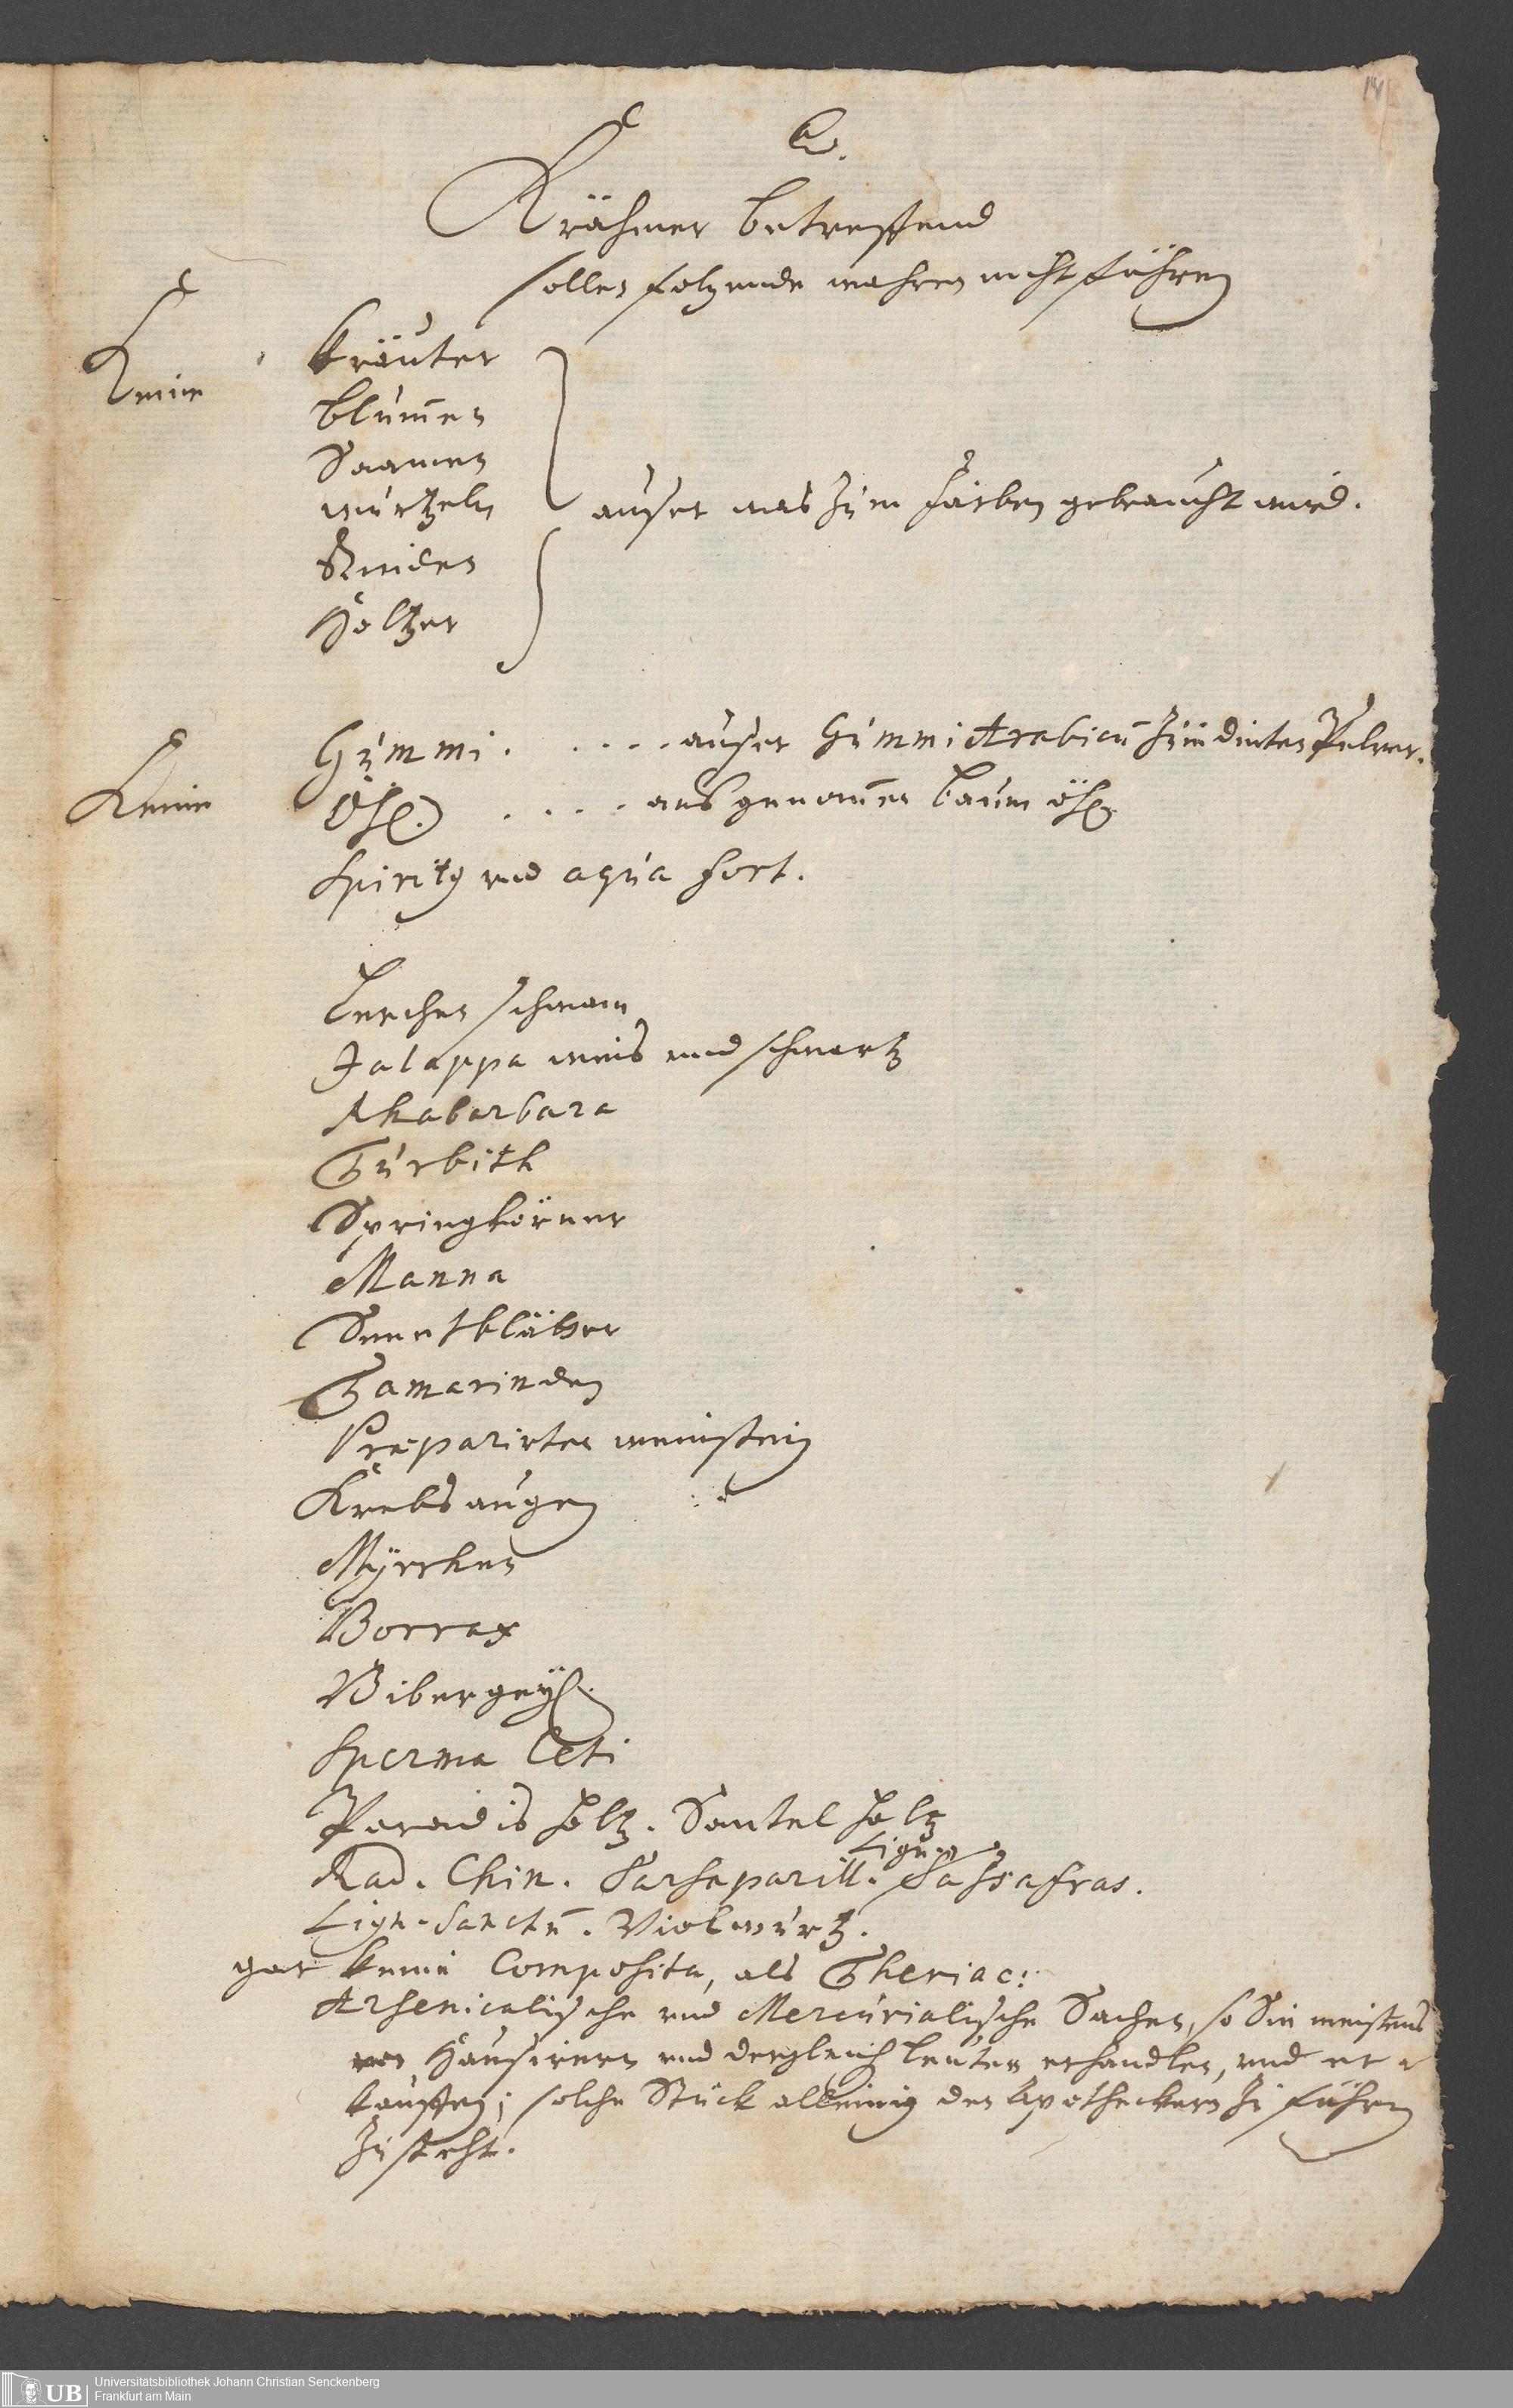 14
Q.
Krähmer betreffend
sollen folgende wahren nicht führen
Keine
kräuter
blum̄en
Saamen
wurtzeln
außer was zum färben gebraucht wird.
Rinden
Höltzer
Keine
Gummi. .... außer Gummi Arabicū zum dinten Pulver.
Öhl. .... ausgenom̄en baum öhl
Spirity vnd aqua fort.
Lerchen schwam
Jalappa weis vnd schwartz
Rhabarbara
Turbith
Springkörner
Manna
Senetblätter
Tamarinden
Præparirten weinstein
Krebsaugen
Myrrhen
Borrax
Bibergeyl.
Sperma Ceti
Paradis holtz. Santel holtz
Rad. Chin. Sarsaparill. Lignū Sassafras.
Lign. Sanctū. Violwurtz.
gar keine Composita, als Theriac:
Arsenicalische vnd Mercurialische Sachen, so Sie meistens
von Hausirern vnd dergleich leuten erhandlen, vnd er
kauffen; solche Stück alleinig den Apotheckern zu führen
zu steht.
UB Universitätsbibliothek Johann Christian Senckenberg
Frankfurt am Main